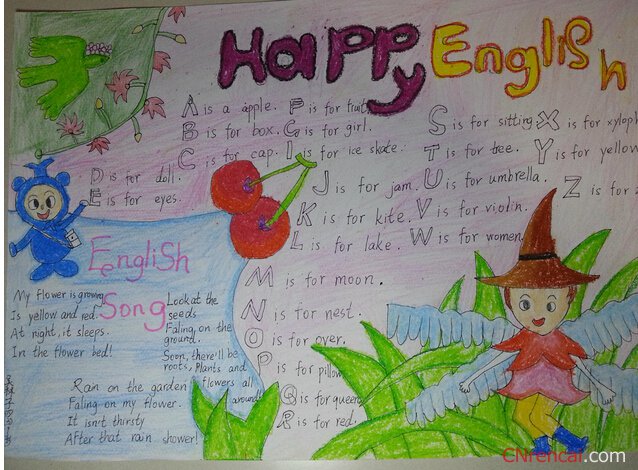 Happy
English
A is a apple.
B is for box.
C is for cap.
D is for doll.
E is for eyes.
F is for fruit.
G is for girl.
I is for ice skate.
J is for jam.
K is for kite.
L is for lake.
M is for moon.
N is for nest.
O is for over.
P is for pillow
Q is for queen
R is for red.
S is for sitting
T is for tree.
U is for umbrella.
V is for violin.
W is for women.
X is for xyloph
Y is for yellow
Z is for
English
Song
My flower is growing
Is yellow and red.
At night, it sleeps.
In the flower bed!
Look at the
seeds
Faling, on the
ground.
Soon, there'll be
roots, Plants and
flowers all
around!
Rain on the garden
Faling on my flower.
It isn't thirsty
After that rain shower!
CNrencai.com